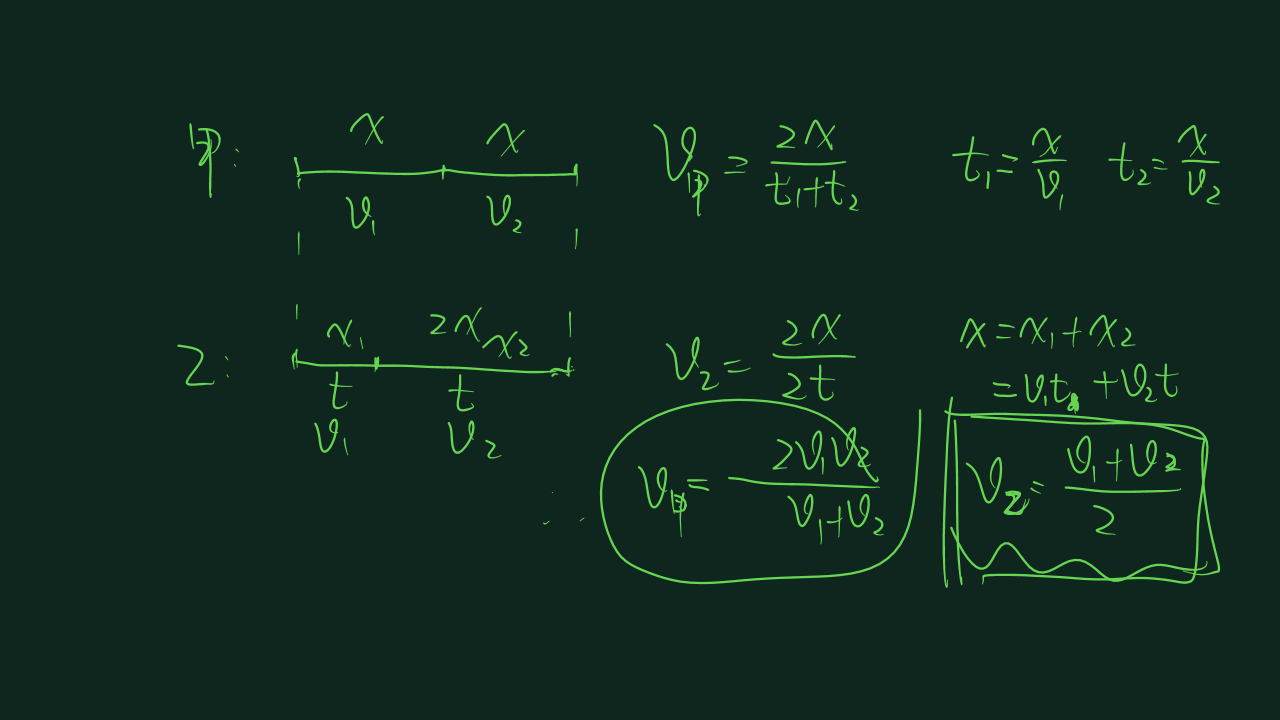 甲: x x v₁ v₂ v甲 = 2x/(t₁+t₂) t₁ = x/v₁ t₂ = x/v₂
乙: x₁ 2x x₂ t t v₁ v₂ v乙 = 2x/2t x = x₁ + x₂
= v₁t + v₂t
∴ v甲 = 2v₁v₂/(v₁+v₂) v乙 = (v₁+v₂)/2